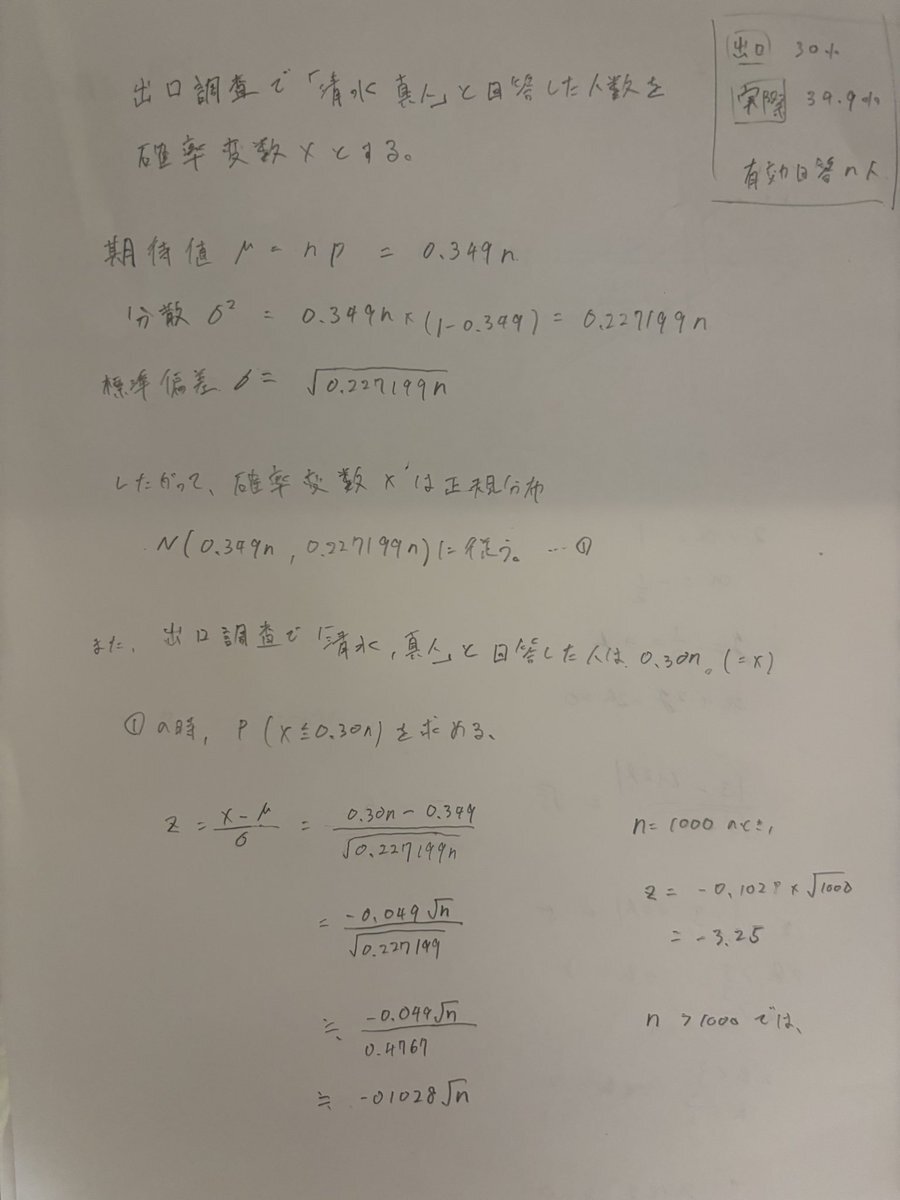 出口 30%
実際 34.9%
有効回答n人
出口調査で「清水 真人」と回答した人数を
確率変数Xとする。
期待値 μ = np = 0.349n
分散 σ² = 0.349n×(1-0.349) = 0.227199n
標準偏差 σ = √0.227199n
したがって、確率変数Xは正規分布
N(0.349n, 0.227199n)に従う。…①
また、出口調査で「清水,真人」と回答した人は 0.30n。(=x)
①の時, P(X≦0.30n)を求める、
Z = X-μ/σ = 0.30n-0.349/√0.227199n
= -0.049√n/√0.227199
≒ -0.049√n/0.4767
≒ -01028√n
n=1000のとき,
Z = -0.1028×√1000
= -3.25
n >1000では、